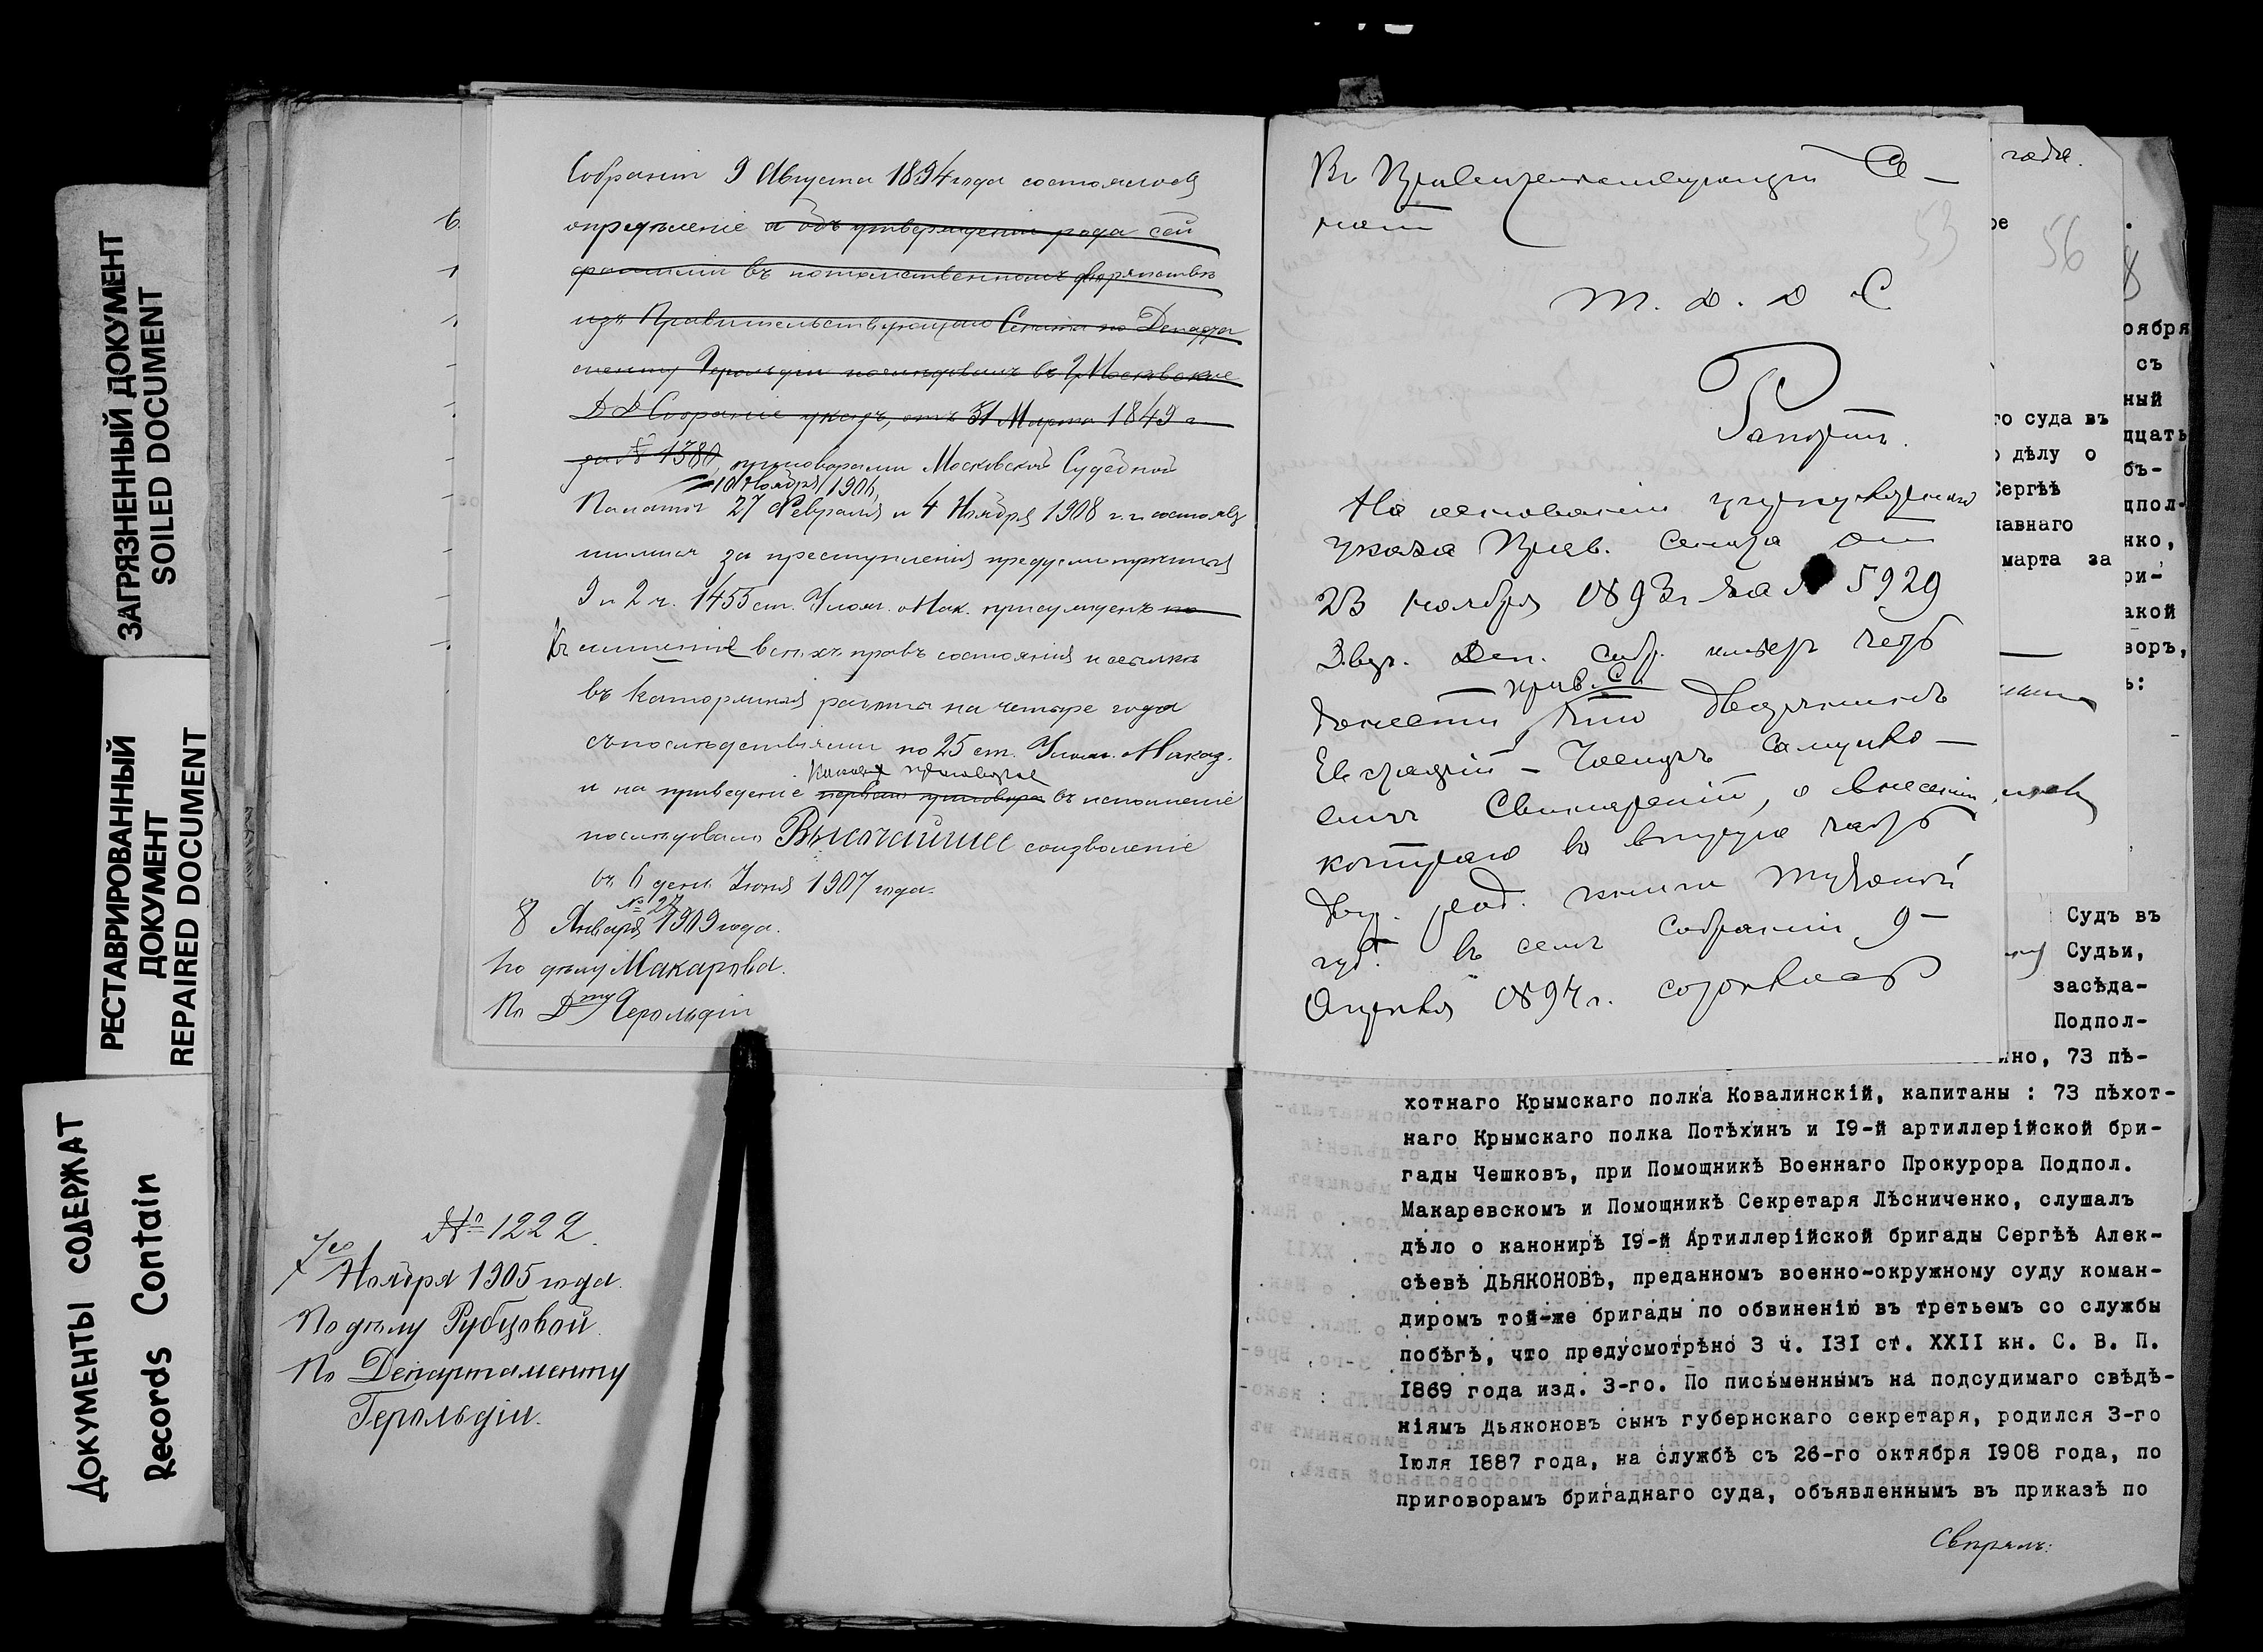 ЗАГРЯЗНЕННЫЙ ДОКУМЕНТ
SOILED DOCUMENT
РЕСТАВРИРОВАННЫЙ
ДОКУМЕНТ
REPAIRED DOCUMENT
ДОКУМЕНТЫ СОДЕРЖАТ
Records Contain
Собраніи 9 Августа 1894 года состоялось
опредѣленіе и объ утвержденіи рода сей
фамиліи въ потомственномъ дворянствѣ
изъ Правительствующаго Сената по Департа
менту Герольдіи послѣдовалъ въ Московское
Д Д Собраніе указъ, отъ 31 Марта 1849 г
за № 1380, приговорами Московской Судебной
10 Ноября 1906,
Палаты 27 Февраля и 4 Ноября 1908 г.г. состояв
шимися за преступленія предусмотрѣнныя
9 и 2 ч. 1455 ст. Улож. о Нак. присужденъ по
къ лишенію всѣхъ правъ состоянія и ссылкѣ
въ каторжныя работы на четыре года
съ послѣдствіями по 25 ст. Улож. о Наказ.
и на приведеніе перваго приговора въ исполненіе
послѣдовало Высочайшее соизволеніе
въ 6 день Іюня 1907 года.
№ 27
8 Января 1909 года.
По дѣлу Макарова.
По Д-ту Герольдіи
№ 1222
7го Ноября 1905 года.
По дѣлу Рубцовой.
По Департаменту
Герольдіи.
Въ Правительствующій Се-
натъ
М. Д. Д. С
Рапортъ.
На основаніи
указа Прав. Сената отъ
23 ноября 1893 г за № 5929
Двор. Деп. Собр. имѣетъ честь
Прав. С.
донести что дворянинъ
Свинарскій, о внесеніи
котораго во вторую часть
Двор. род. книги
губ. въ семъ Собраніи 9-
Августа 1894 г. состоялось
года.
53
56
8
оября
съ
ный
го суда въ
дцать
о дѣлу о
бъ-
Сергѣѣ
дпол-
лавнаго
нко,
марта за
ри-
акой
воръ,
ъ:
Судъ въ
Судьи,
засѣда-
Подпол-
ино, 73 пѣ-
хотнаго Крымскаго полка Ковалинскій, капитаны : 73 пѣхот-
наго Крымскаго полка Потѣхинъ и 19-й артиллерійской бри-
гады Чешковъ, при Помощникѣ Военнаго Прокурора Подпол.
Макаревскомъ и Помощникѣ Секретаря Лѣсниченко, слушалъ
дѣло о канонирѣ 19-й Артиллерійской бригады Сергѣѣ Алек-
сѣевѣ ДЬЯКОНОВѢ, преданномъ военно-окружному суду коман-
диромъ той-же бригады по обвиненію въ третьемъ со службы
побѣгѣ, что предусмотрѣно 3 ч. 131 ст. XXII кн. С. В. П.
1869 года изд. 3-го. По письменнымъ на подсудимаго свѣдѣ-
ніямъ Дьяконовъ сынъ губернскаго секретаря, родился 3-го
Іюля 1887 года, на службѣ съ 26-го октября 1908 года, по
приговорамъ бригаднаго суда, объявленнымъ въ приказѣ по
Свѣрялъ: